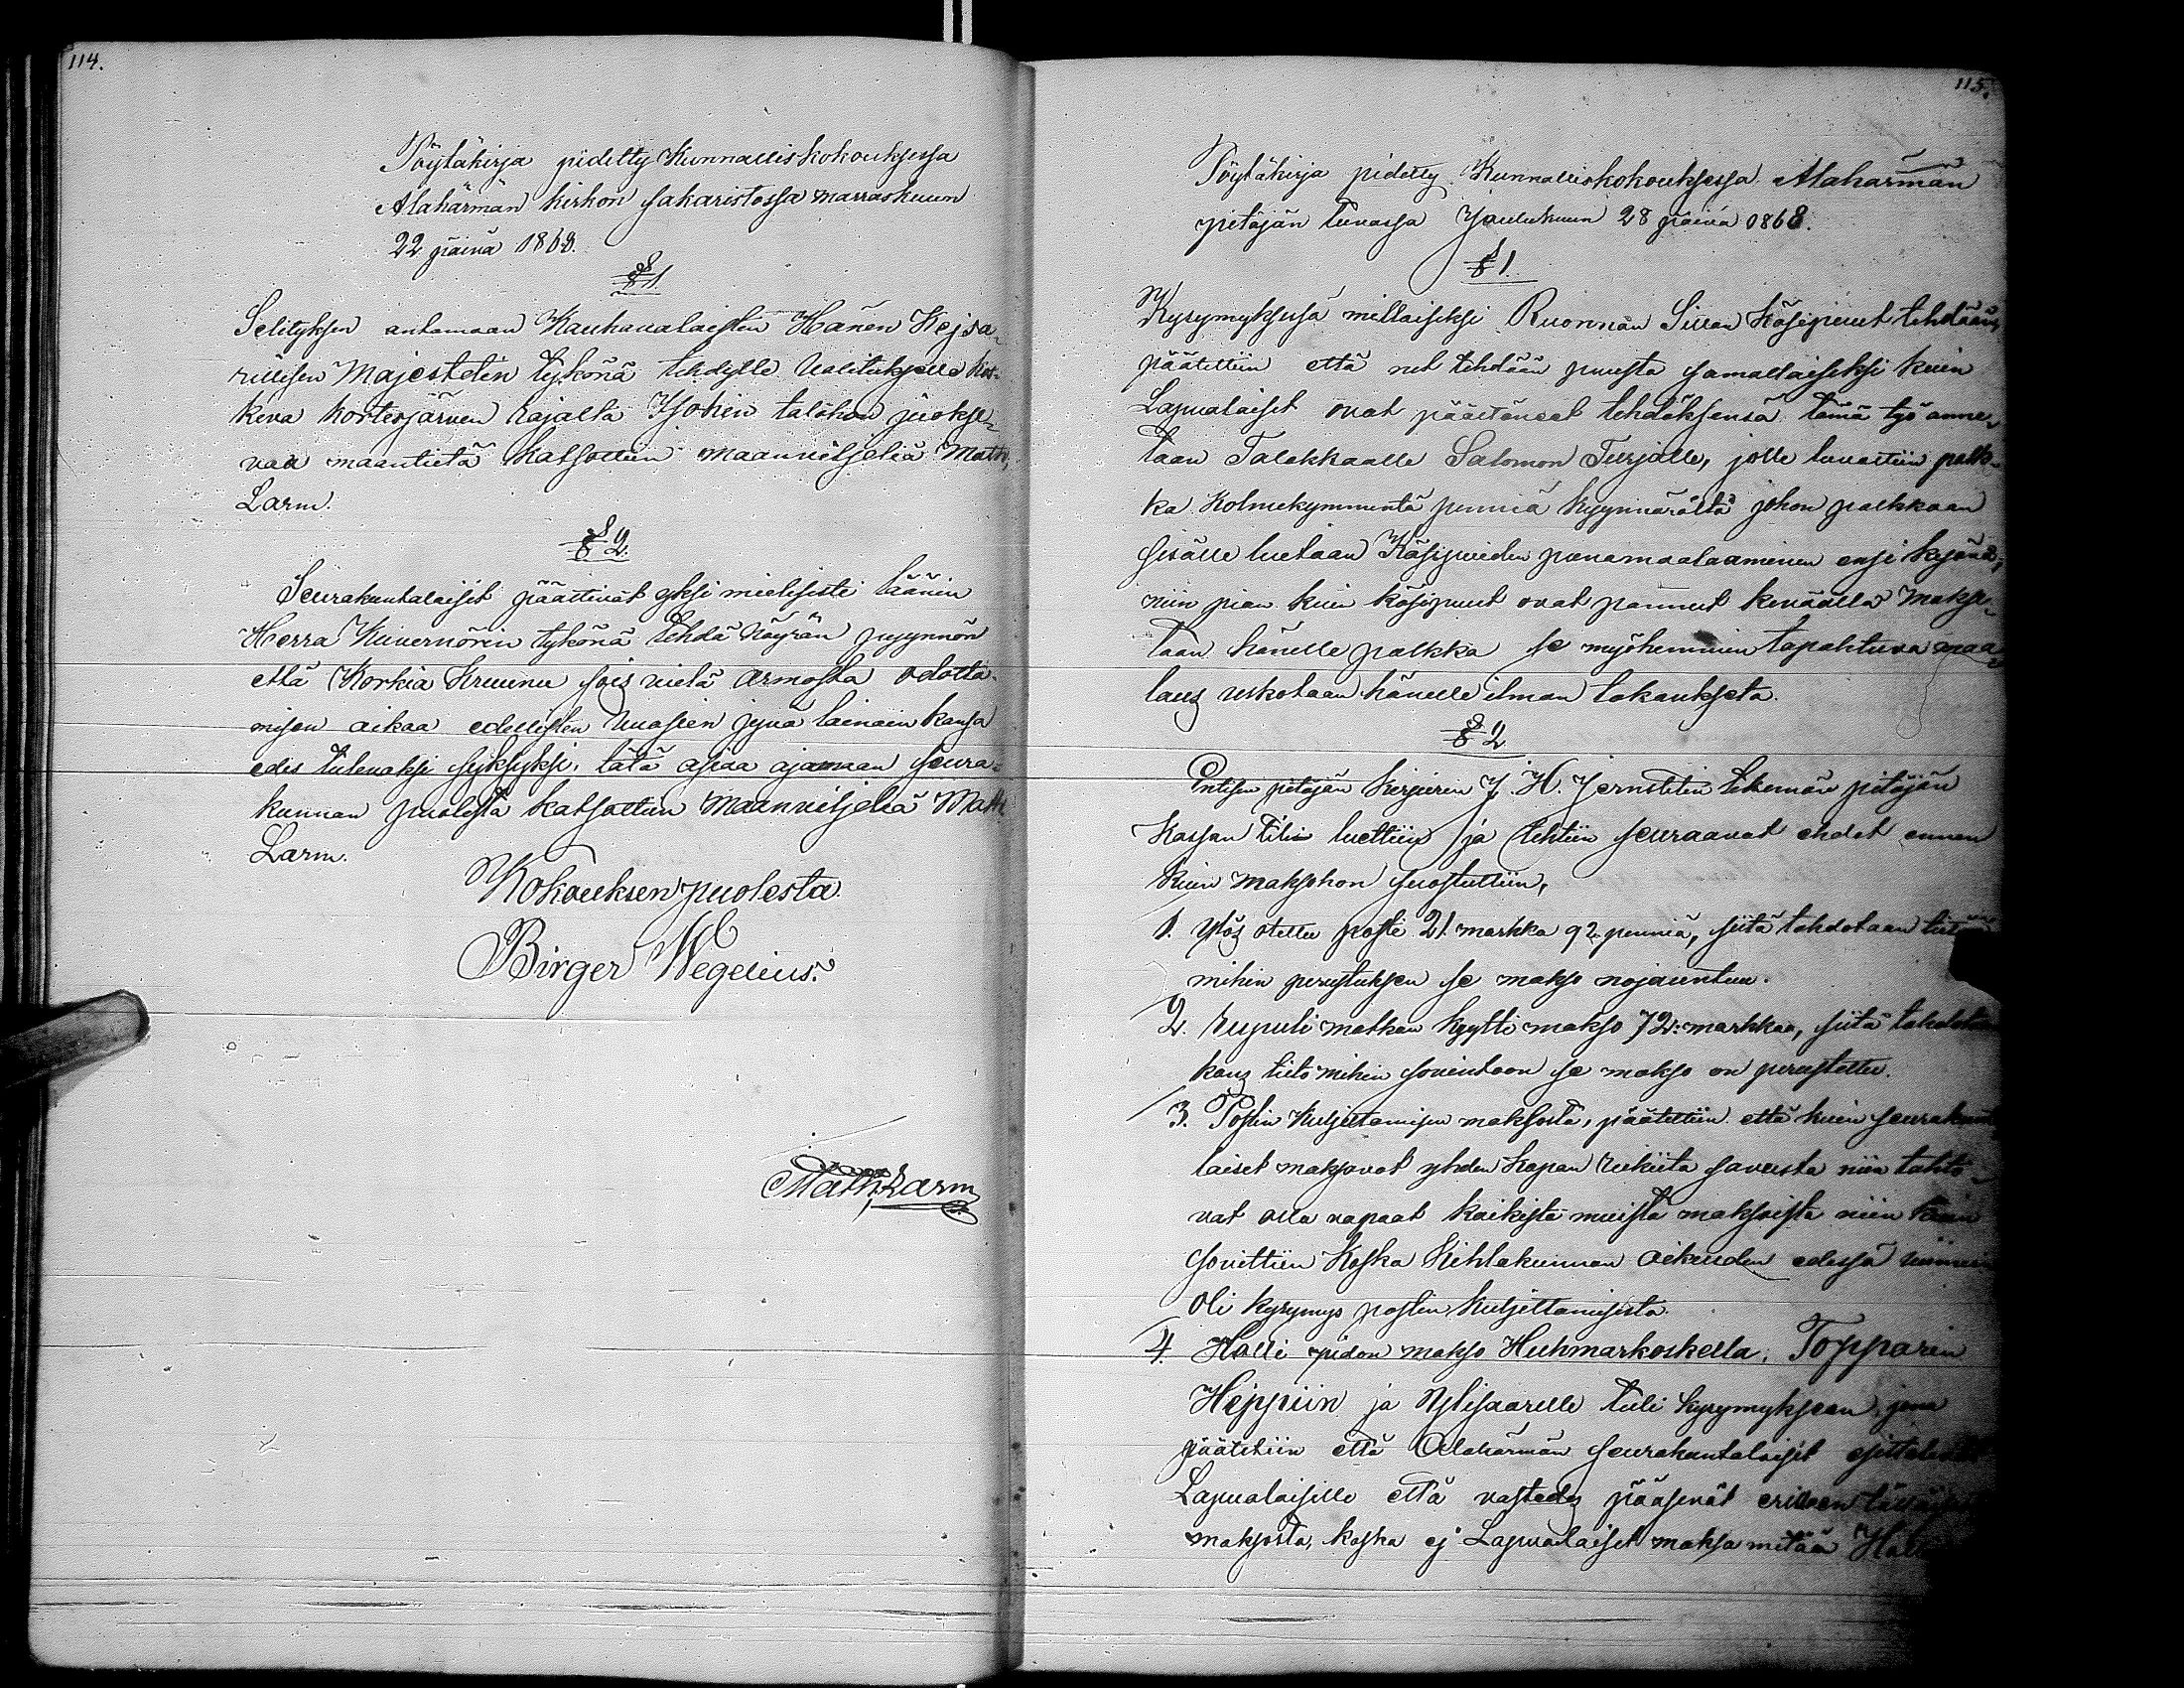 114.
Pöytäkirja pidetty Kunnalliskokouksessa
Alahärmän kirkon sakaristossa marraskuun
22 päivä 1868.
§ 1
Selityksen antamaan Kauhavalaisten Hänen Kejsa-
rillisen Majestetin tykönä tehdylle valitukselle kos-
keva kortesjärven rajalta Ysohin talohon juokse-
vaa maantietä katsottiin maanviljeliä Matts,
Larm.
§ 2.
Seurakuntalaiset päättivät yksi mielisesti läänin
Herra Kuvernörin tykönä tehdä nöyrän pyynnön
että Korkia Kruunu sois vielä armosta odotta-
misen aikaa edellisten vuosien jyvä lainain kansa
edes tulevaksi syksyksi, tätä asiaa ajamaan seura-
kunnan puolesta katsottiin Maanviljeliä Matts
Larm.
Kokouksen puolesta
Birger Wegelius.
Matts Larm
115.
Pöytäkirja pidetty Kunnalliskokouksessa Alahärmän
pitäjän tuvassa Jouluknun 28 päivä 1868.
§ 1.
Kysymyksesä millaiseksi Ruonnan Sillan Käsipuut tehdään,
päätettiin että net tehdään puusta samallaiseksi kuin
Lapualaiset ovat päättäneet tehdäksensä tämä työ anne-
taan Talokkaalle Salomon Turjalle, jolle luvattiin palk-
ka Kolmekymmentä penniä kyynärältä johon palkkaan
sisälle luetaan Käsipuiden punamaalaaminen ensi kesänä,
niin pian kuin käsipuut ovat pannut keväällä makse-
taan hänelle palkka se myöhemmin tapahtuva maa-
laus uskotaan hänelle ilman takaukseta.
§ 2
Entisen pitäjän kirjurin J. H. Jernstetin tekemän pitäjän
Kassan tilin luettiin ja tehtiin seuraavat ehdot ennen
kuin maksohon suostuttiin,
1. Ylös otettu posti 21 markka 92 penniä, siitä tahdotaan
mihin perustuksen se makso nojauntuu.
2. rupuli matkan kyytti makso 72: markkaa, siitä
kans tieto mihin sovintoon se makso on perustettu.
3. Postin Kuljettamisen maksosta, päätettiin että kuin
laiset maksavat yhden kapan rukiita savusta niin tahto-
vat olla vapaat kaikista muista maksoista niin kuin
sovittiin Koska Kihlakunnan oikeuden edessä
oli kysymys postin kuljettamisesta.
4. Holli pidon makso Huhmarkoskella, Topparin
Heppiin ja Ylisaarelle tuli kysymykseen, jona
päätetiin että Alahärmän seurakuntalaiset
Lapualaisille että vastedes pääsevät erilleen
maksosta, koska ej Lapualaiset maksa mitään